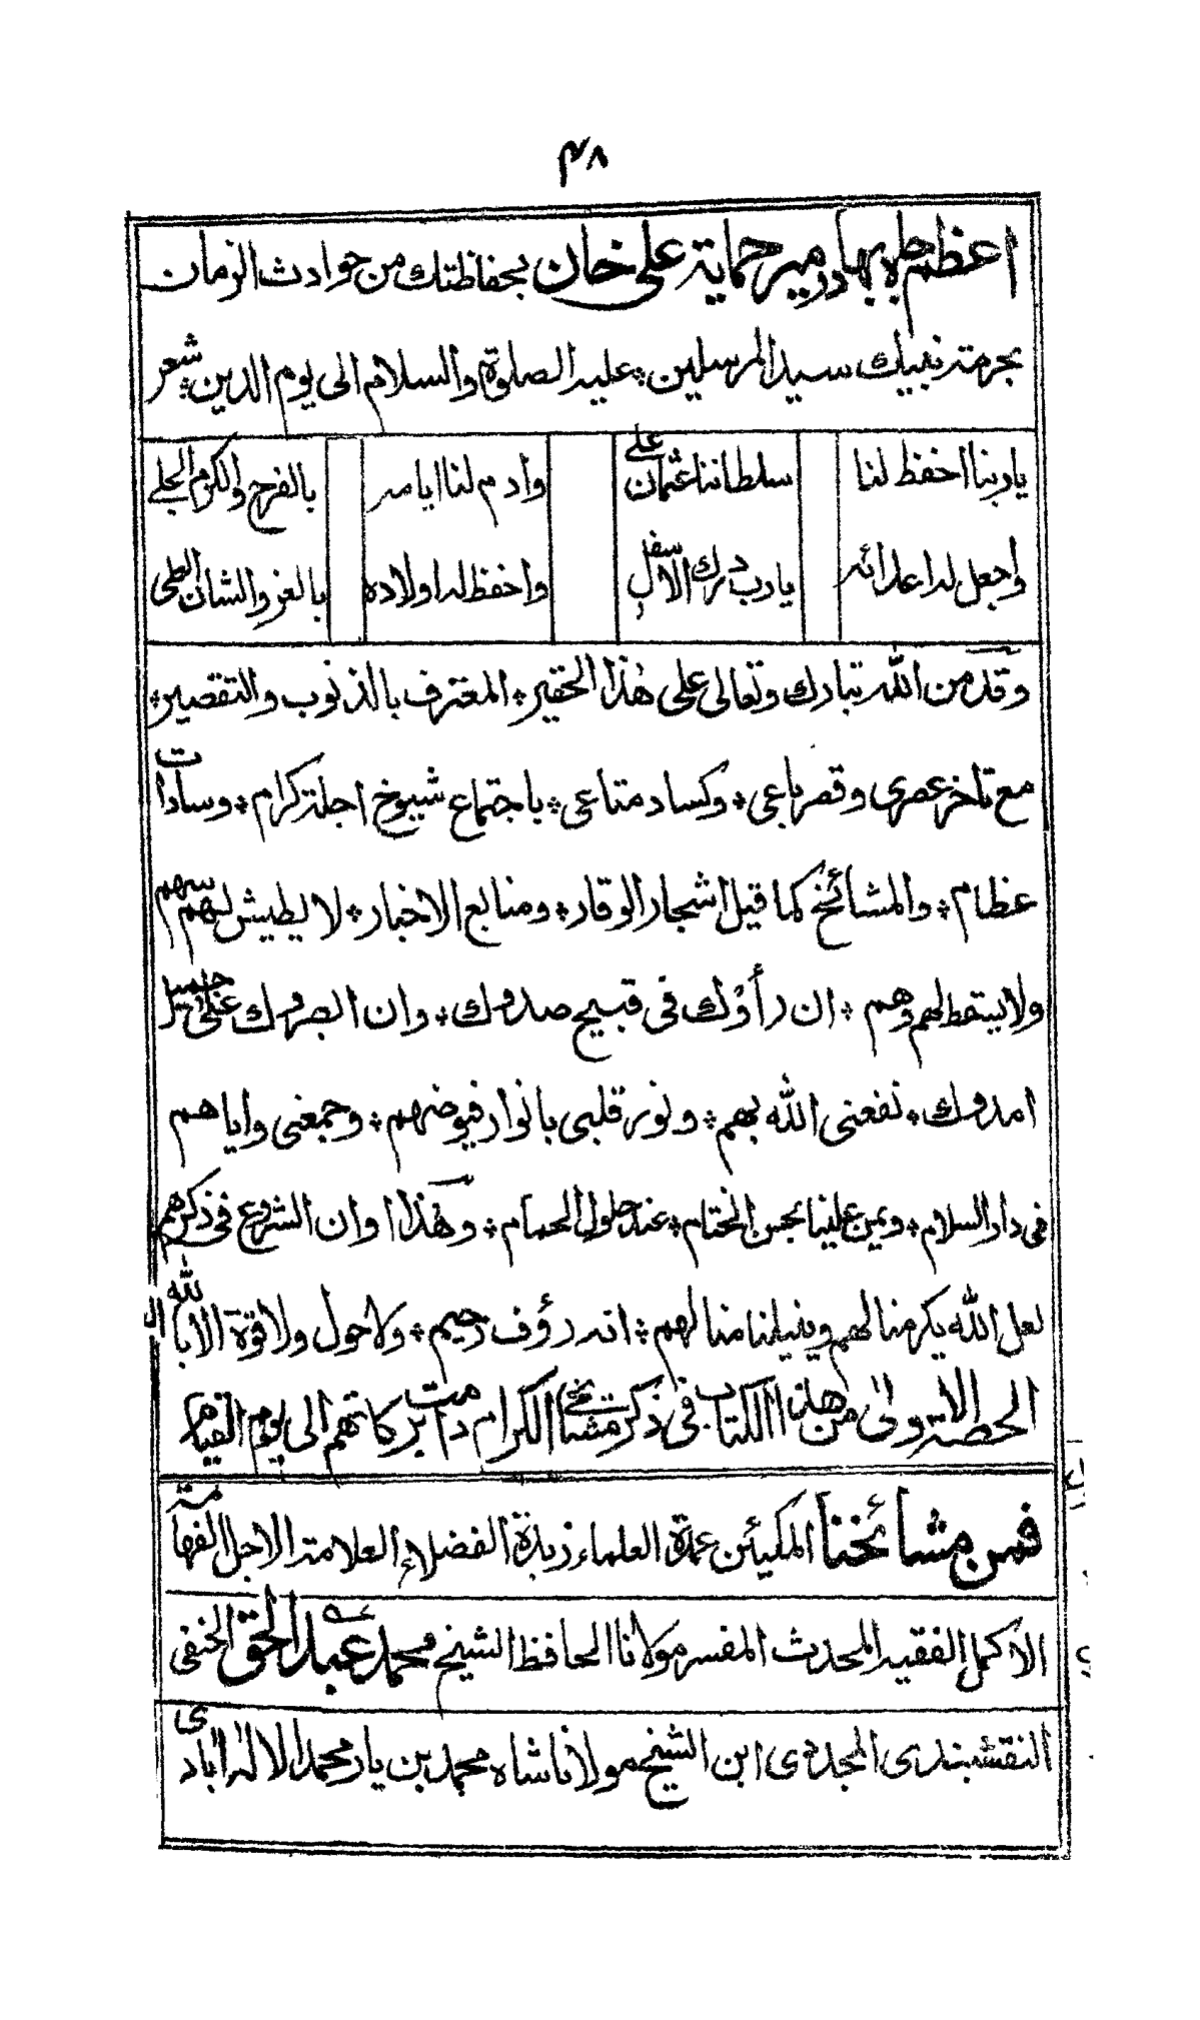 ۴۸
اعظم جاه بهادر مير حماية علي خان بحفاظتك من حوادث الزمان
بحرمة نبيك سيد المرسلين ؞ عليه الصلوة والسلام الى يوم الدين ؞ شعر
يا ربنا احفظ لنا سلطاننا عثمان علي وادم لنا ايامه بالفرح والكرم الجلي
واجعل له اعدائه يا رب درك الاسفل واحفظ له اولاده بالعز والشان العلي
وقد من الله تبارك وتعالى على هذا الحقير ؞ المعترف بالذنوب والتقصير ؞
مع تاخر عصرى وقصر باعى ؞ وكساد متاعى ؞ باجتماع شيوخ اجلة كرام ؞ وسادات
عظام ؞ والمشائخ كما قيل اشجار الوقار ؞ ومنابع الاخبار ؞ لا يطيش لهم سهم
ولا يسقط لهم وهم ؞ ان رأوك فى قبيح صدوك ؞ وان ابصروك على جميل
امدوك ؞ نفعنى الله بهم ؞ ونور قلبى بانوار فيوضهم ؞ وجمعنى واياهم
فى دار السلام ؞ ويمن علينا بحسن الختام ؞ عند حلول الحمام ؞ وهذا اوان الشروع فى ذكرهم
لعل الله يكرمنا لهم وينيلنا منالهم ؞ انه رؤف رحيم ؞ ولا حول ولا قوة الا بالله
الحصة الاولى من هذا الكتاب فى ذكر مشائخى الكرام دامت بركاتهم الى يوم القيام
فمن مشائخنا المكيئن عمدة العلماء زبدة الفضلاء العلامة الاجل الفهامة
الاكمل الفقيه المحدث المفسر مولانا الحافظ الشيخ محمد عبد الحق الحنفى
النقشبندى المجددى ابن الشيخ مولانا شاه محمد بن يار محمد الاله ابادى